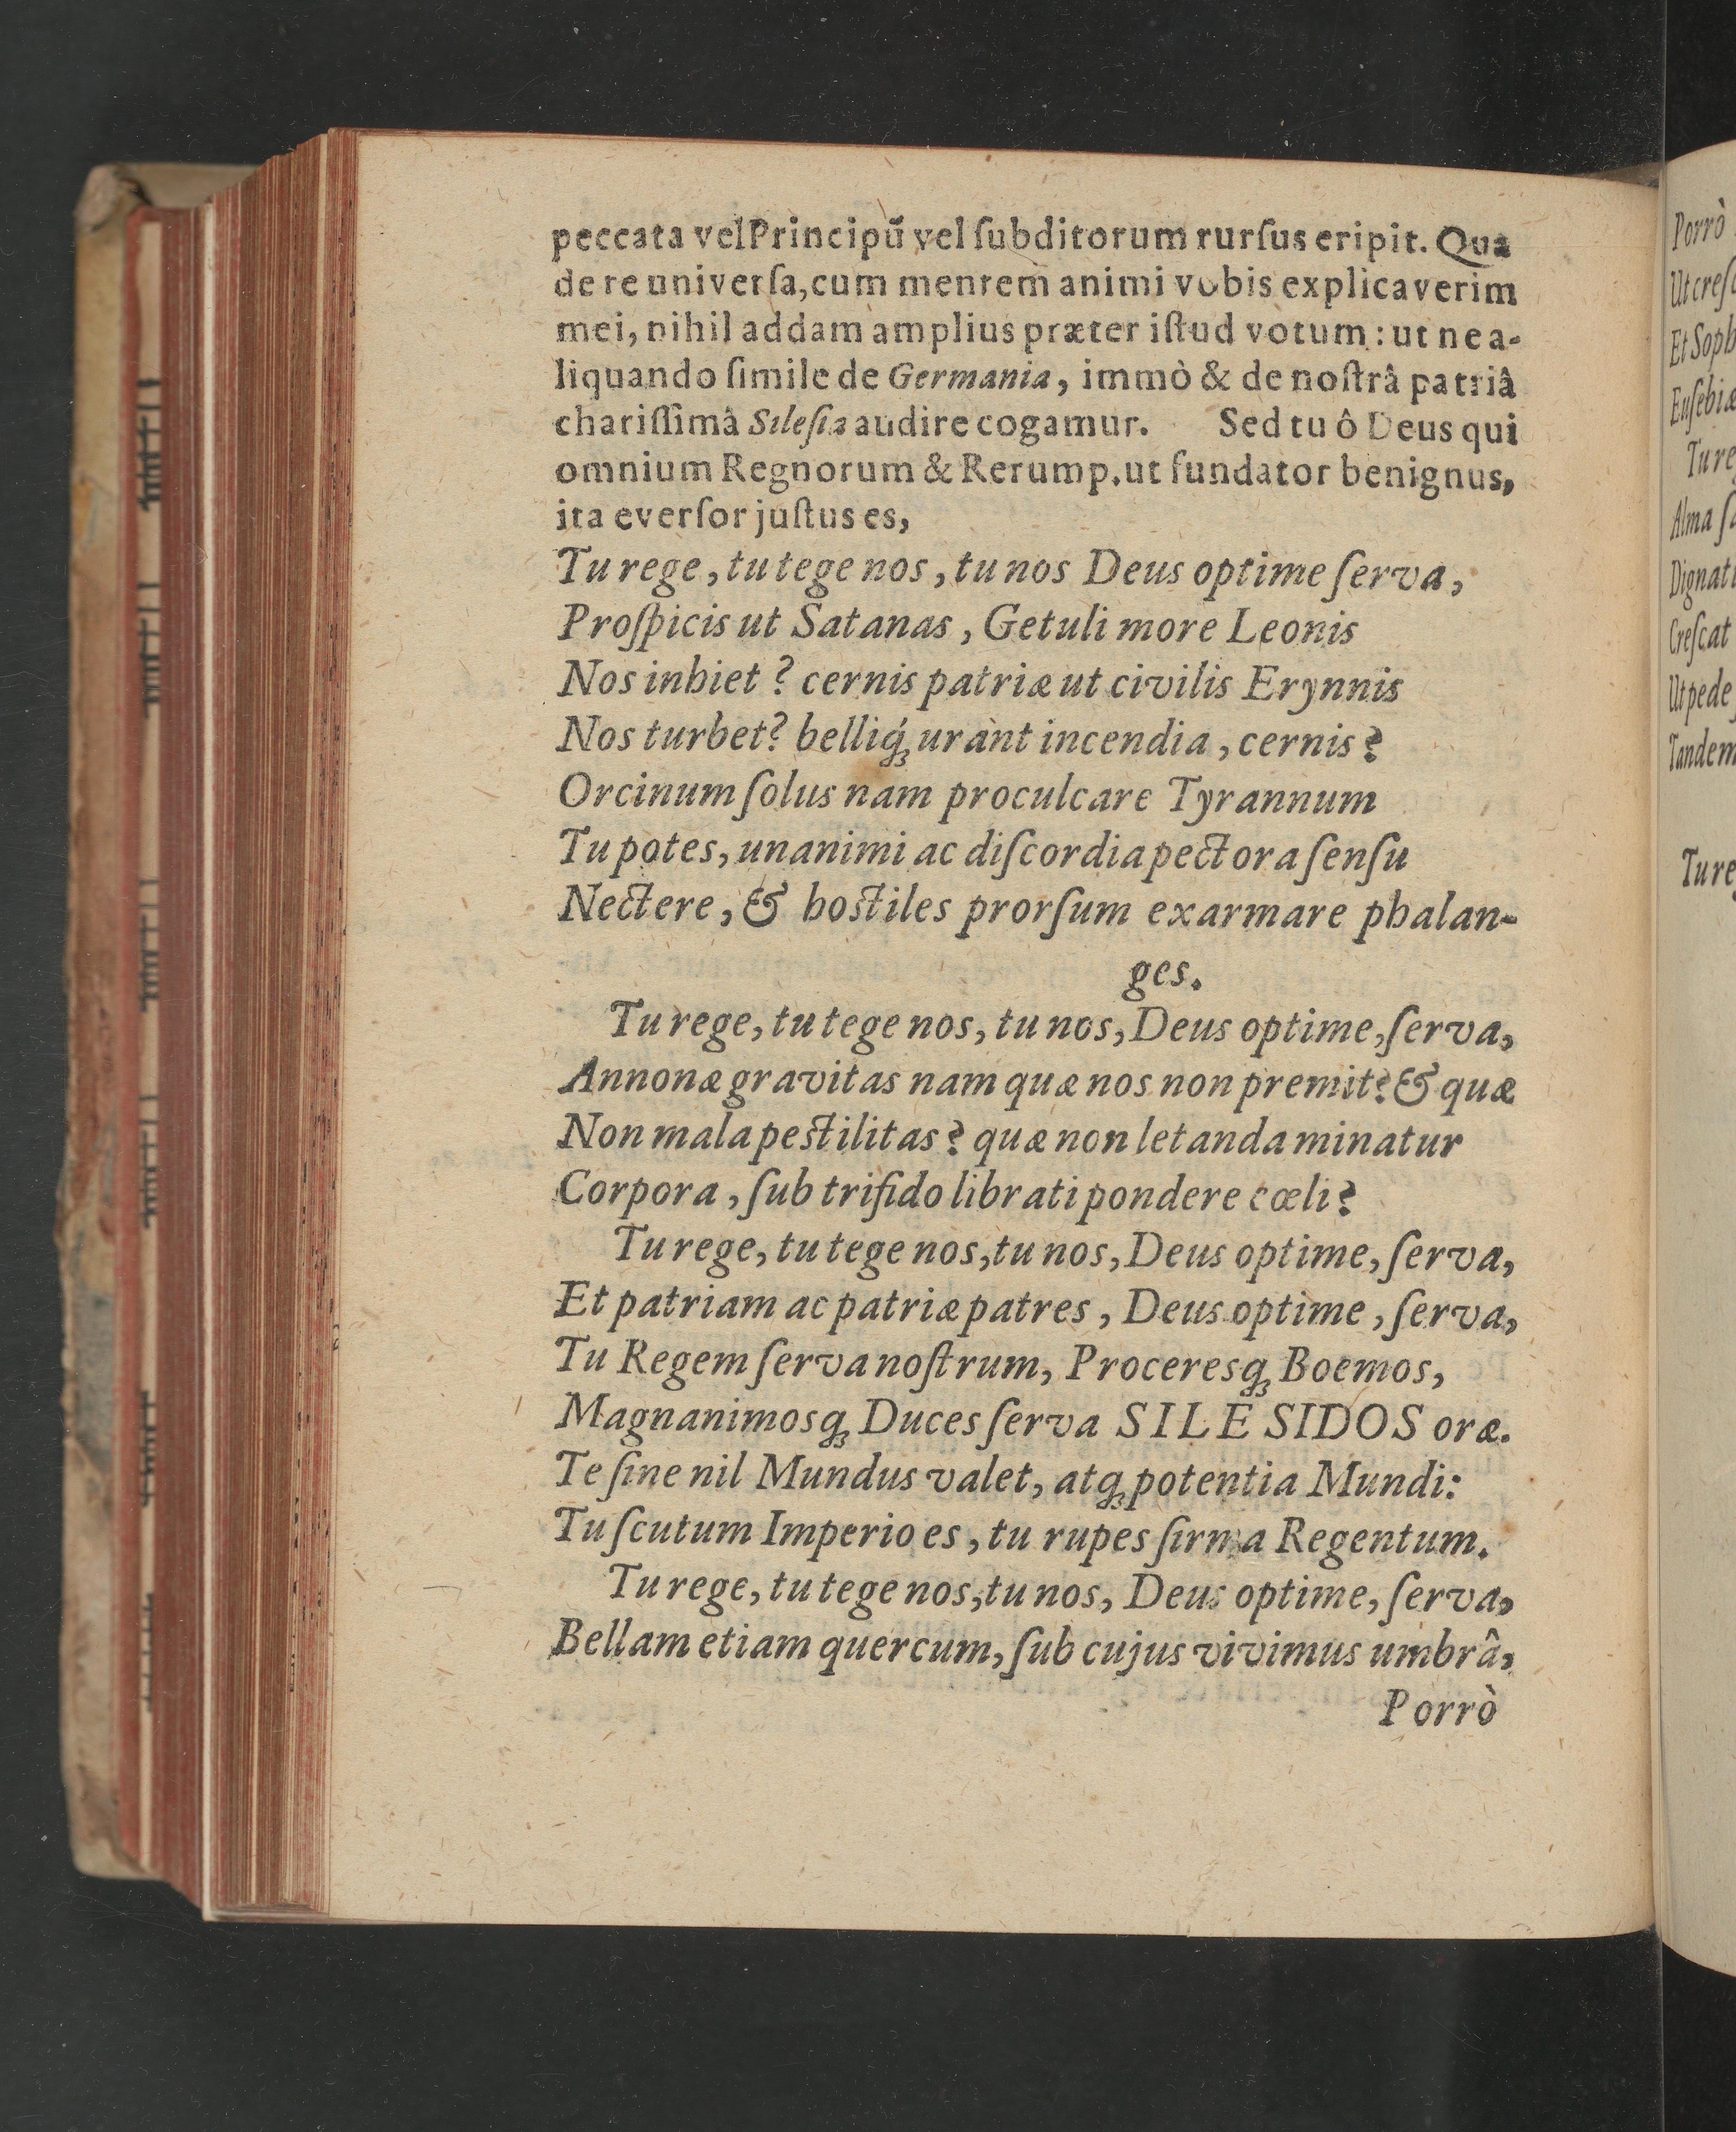 peccata vel Principũ vel ſubditorum rurſus eripit. Qua
de re univerſa, cum mentem animi vobis explicaverim
mei, nihil addam amplius præter iſtud votum: ut ne a-
liquando ſimile de Germania, immò & de noſtrâ patriâ
chariſſimâ Sileſia audire cogamur. Sed tu ô Deus qui
omnium Regnorum & Rerump. ut fundator benignus,
ita everſor juſtus es,
Tu rege, tu tege nos, tu nos Deus optime ſerva,
Proſpicis ut Satanas, Getuli more Leonis
Nos inhiet? cernis patriæ ut civilis Erynnis
Nos turbet? belliq́ꝫ urant incendia, cernis?
Orcinum ſolus nam proculcare Tyrannum
Tu potes, unanimi ac diſcordia pectora ſenſu
Nectere, & hoſtiles prorſum exarmare phalan-
ges.
Tu rege, tu tege nos, tu nos, Deus optime, ſerva,
Annonæ gravitas nam quæ nos non premit? & quæ
Non mala peſtilitas? quæ non letanda minatur
Corpora, ſub trifido librati pondere cœli?
Tu rege, tu tege nos, tu nos, Deus optime, ſerva,
Et patriam ac patriæ patres, Deus optime, ſerva,
Tu Regem ſerva noſtrum, Proceresqꝫ Boemos,
Magnanimosqꝫ Duces ſerva SILESIDOS oræ.
Te ſine nil Mundus valet, atqꝫ potentia Mundi:
Tu ſcutum Imperio es, tu rupes firma Regentum.
Tu rege, tu tege nos, tu nos, Deus optime, ſerva,
Bellam etiam quercum, ſub cujus vivimus umbrâ,
Porrò
Porrò
Et
Tu
Alma
Creſcat
Ut pede
Tandem